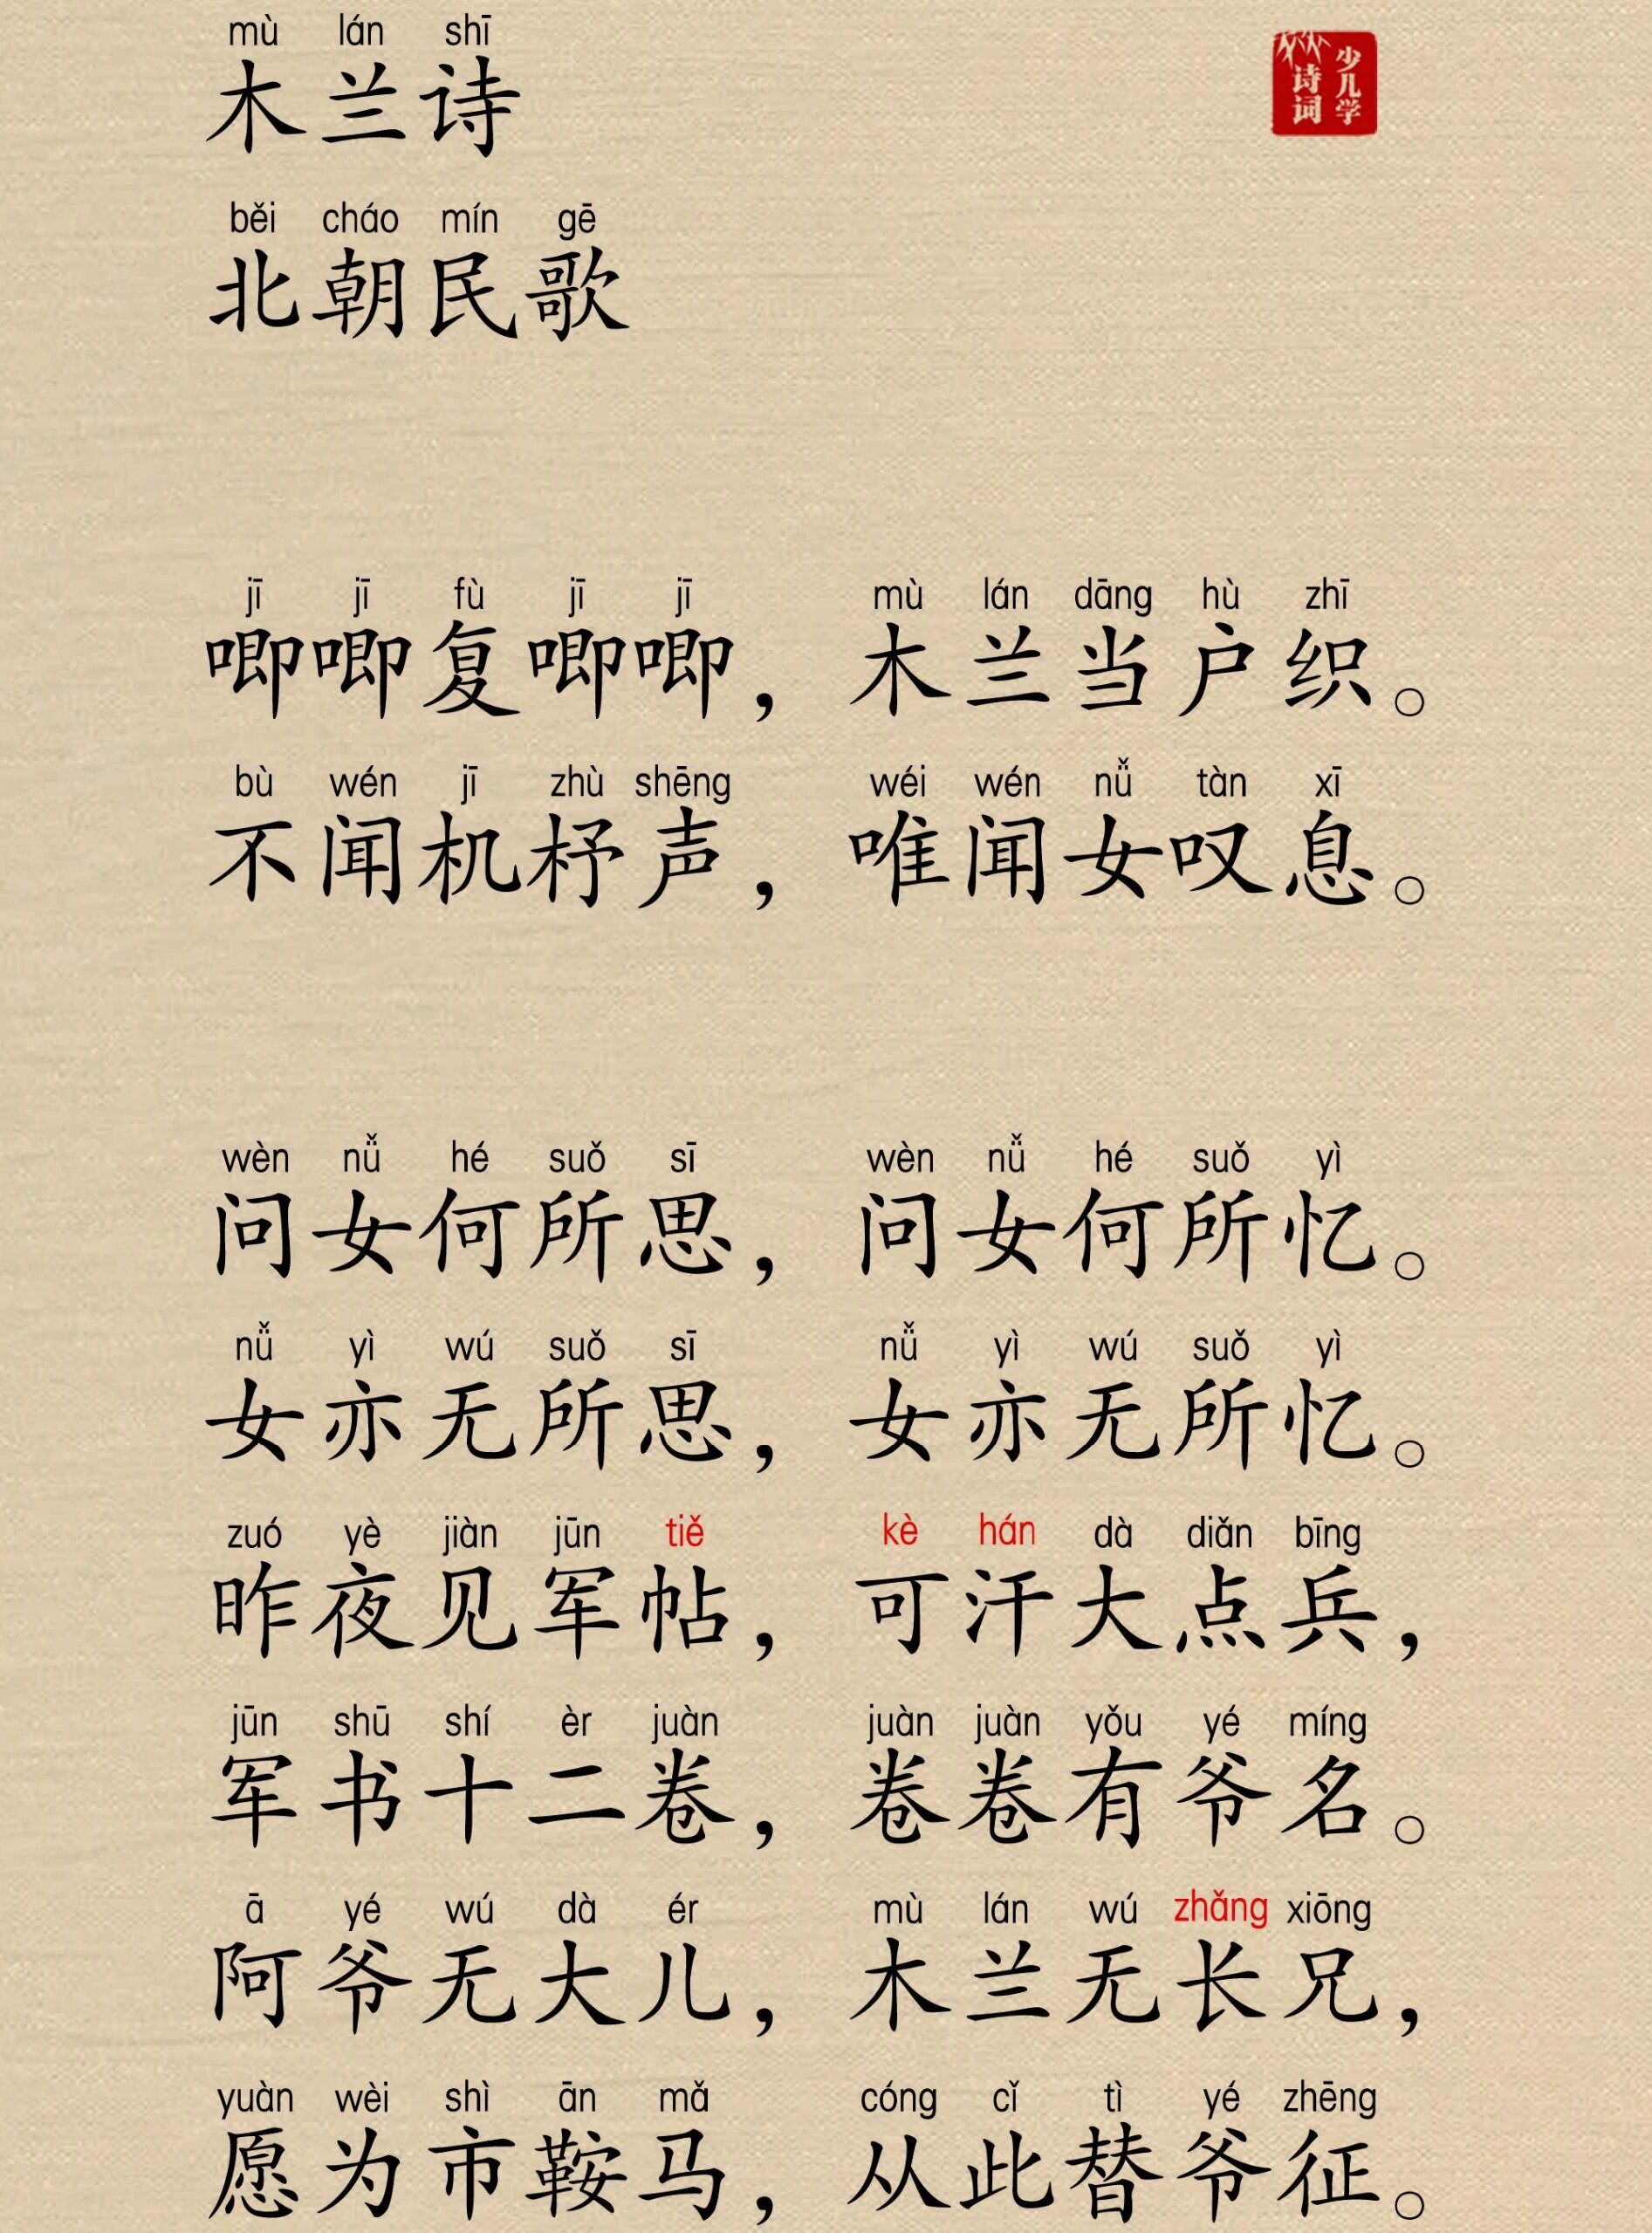 mù lán shī
木兰诗
少儿学
诗词
běi cháo mín gē
北朝民歌
jī jī fù jī jī mù lán dāng hù zhī
唧唧复唧唧，木兰当户织。
bù wén jī zhù shēng wéi wén nǚ tàn xī
不闻机杼声，唯闻女叹息。
wèn nǚ hé suǒ sī wèn nǚ hé suǒ yì
问女何所思，问女何所忆。
nǚ yì wú suǒ sī nǚ yì wú suǒ yì
女亦无所思，女亦无所忆。
zuó yè jiàn jūn tiě kè hán dà diǎn bīng
昨夜见军帖，可汗大点兵，
jūn shū shí èr juàn juàn juàn yǒu yé míng
军书十二卷，卷卷有爷名。
ā yé wú dà ér mù lán wú zhǎng xiōng
阿爷无大儿，木兰无长兄，
yuàn wèi shì ān mǎ cóng cǐ tì yé zhēng
愿为市鞍马，从此替爷征。